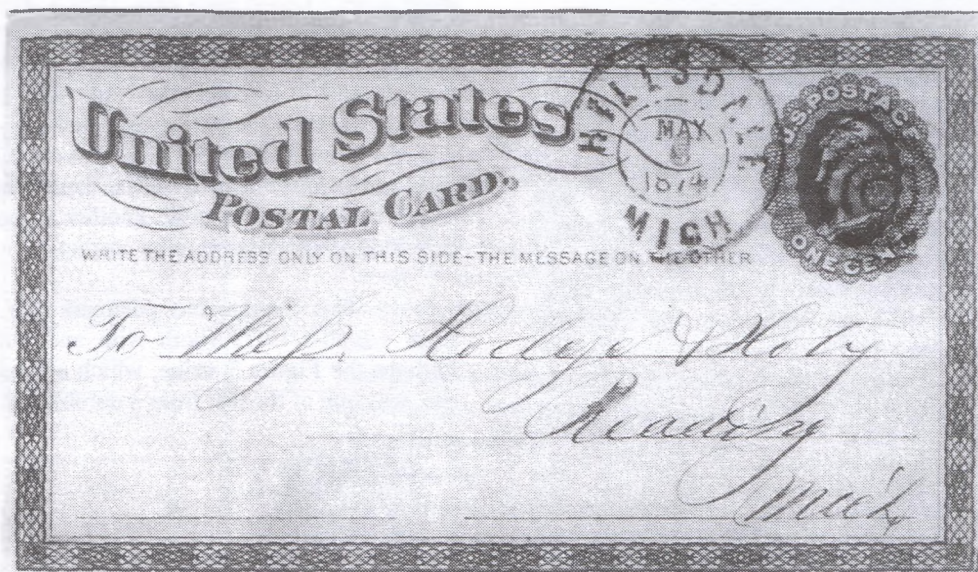 United States
POSTAL CARD.
HILLSDALE
MAY
1874
MICH
U.S. POSTAGE
ONE CENT
WRITE THE ADDRESS ONLY ON THIS SIDE-THE MESSAGE ON THE OTHER
To Mess. Hodge &
Reading
Mich,